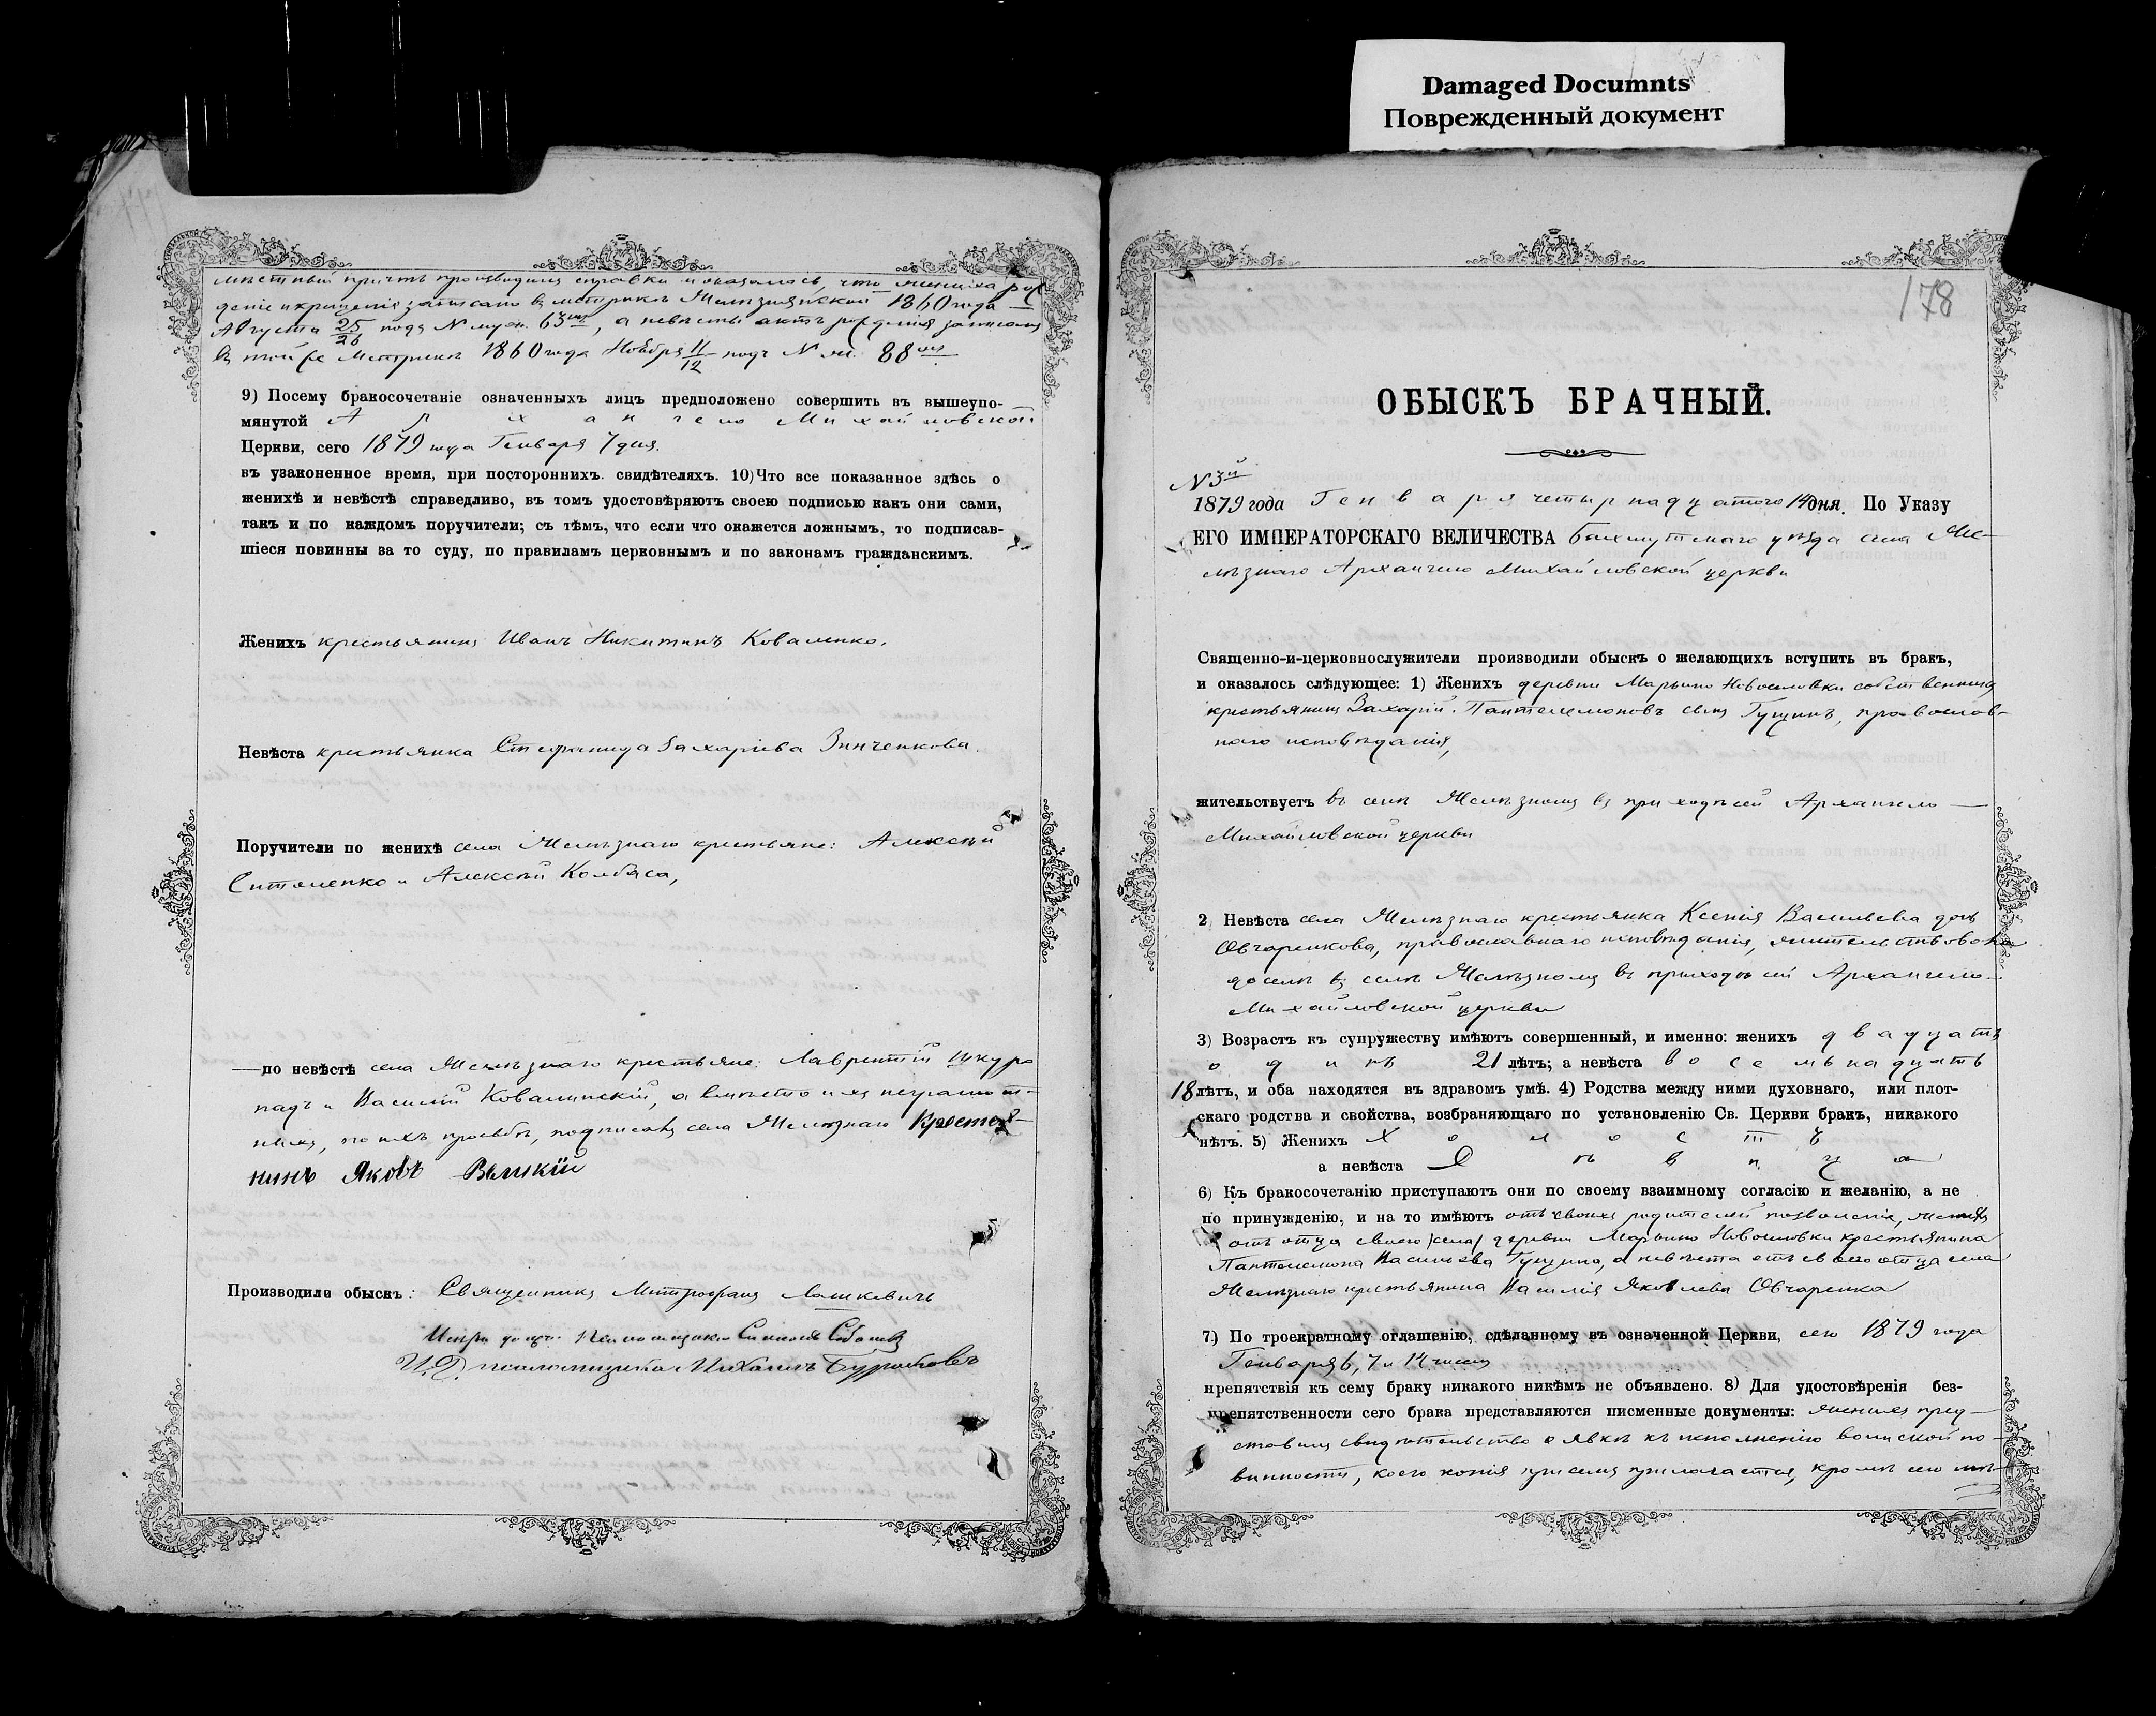 Damaged Documnts
Поврежденный документ
мѣстный причтъ производилъ справки и оказалось, что жениха рож
деніе и крещеніе записано въ метрикѣ Желѣзнянской 1860 года
Августа 25/26 подъ № муж. 63мъ, а невѣсты актъ рожденія записанъ
въ той же Метрикѣ 1860 года Ноября 11/12 подъ № ж. 88мъ
9) Посему бракосочетаніе означенныхъ лицъ предположено совершить въ вышеупо-
мянутой Архангело Михайловской
Церкви, сего 1879 года Генваря 7 дня.
въ узаконенное время, при постороннихъ свидѣтеляхъ. 10) Что все показанное здѣсь о
женихѣ и невѣстѣ справедливо, въ томъ удостовѣряютъ своею подписью какъ они сами,
такъ и по каждомъ поручители; съ тѣмъ, что если что окажется ложнымъ, то подписав-
шіеся повинны за то суду, по правиламъ церковнымъ и по законамъ гражданскимъ.
Женихъ крестьянинъ Иванъ Никитинъ Коваленко.
Невѣста крестьянка Стефанида Захаріева Зинченкова.
Поручители по женихѣ села Желѣзнаго крестьяне: Алексѣй
Ситоленко и Алексѣй Колбаса,
по невѣстѣ села Желѣзнаго крестьяне: Лаврентій Шкуро
падъ и Василій Ковалинскій, а вмѣсто ихъ неграмот-
ныхъ, по ихъ просьбѣ, подписалъ села Желѣзнаго Крестья-
нинъ Яковъ Великій
Производили обыскъ: Священникъ Митрофанъ Лошкевичъ
И. Д. псаломщика Михаилъ Бурачковъ
178
ОБЫСКЪ БРАЧНЫЙ.
№ 3й
1879 года Генваря четырнадцатого 14 дня. По Указу
ЕГО ИМПЕРАТОРСКАГО ВЕЛИЧЕСТВА Бахмутскаго уѣзда села Же-
лѣзнаго Архангело Михайловской церкви
Священно-и-церковнослужители производили обыскъ о желающихъ вступить въ бракъ,
и оказалось слѣдующее: 1) Женихъ деревни Марьино Новоселовки собственникъ
крестьянинъ Захарій Пантелемоновъ сынъ Гущинъ, православ-
наго исповѣданія,
жительствуетъ въ селѣ Желѣзномъ въ приходѣ сей Архангело
Михайловской церкви
2 Невѣста села Желѣзнаго крестьянка Ксенія Васильева дочь
Овчаренкова, православнаго исповѣданія, жительствовала
доселѣ въ селѣ Желѣзномъ въ приходѣ сей Архангело
Михайловской церкви
3) Возрастъ къ супружеству имѣютъ совершенный, и именно: женихъ двадцать
одинъ 21 лѣтъ; а невѣста восемьнадцать
18 лѣтъ, и оба находятся въ здравомъ умѣ. 4) Родства между ними духовнаго, или плот-
скаго родства и свойства, возбраняющаго по установленію Св. Церкви бракъ, никакого
нѣтъ. 5) Женихъ Холостъ
а невѣста Дѣвица
6) Къ бракосочетанію приступаютъ они по своему взаимному согласію и желанію, а не
по принужденію, и на то имѣютъ отъ своихъ родителей позволеніе, женихъ
отъ отца своего /села/ деревни Марьино Новоселовки крестьянина
Пантелемона Васильева Гущина, а невѣста отъ своего отца села
Желѣзнаго крестьянина Василія Яковлева Овчаренка
7.) По троекратному оглашенію, сдѣланному въ означенной Церкви, сего 1879 года
Генваря 6, 7 и 14 чиселъ
препятствія къ сему браку никакого никѣмъ не объявлено. 8) Для удостовѣренія без-
препятственности сего брака представляются писменные документы: женихъ пред-
ставилъ свидѣтельство о явкѣ къ исполненію воинской по
винности, коего копія при семъ прилагается, кромѣ сего мѣ-